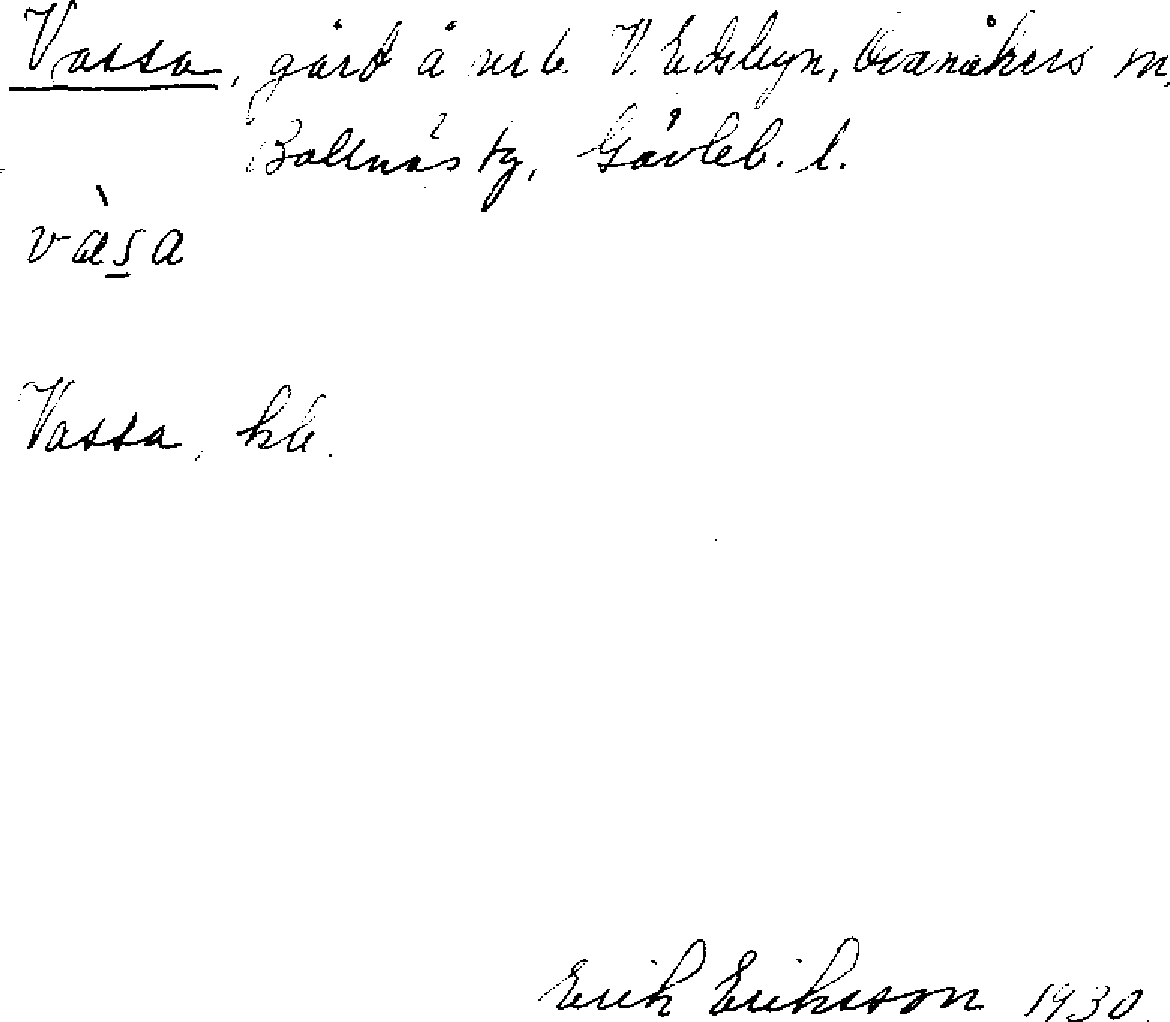 Vassa, gård å nr 6 V. Edsbyn, Ovanåkers sn,
Bollnäs tg, Gävleb. l.
vàs̲a
Vassa, kb.
Erik Eriksson 1930.